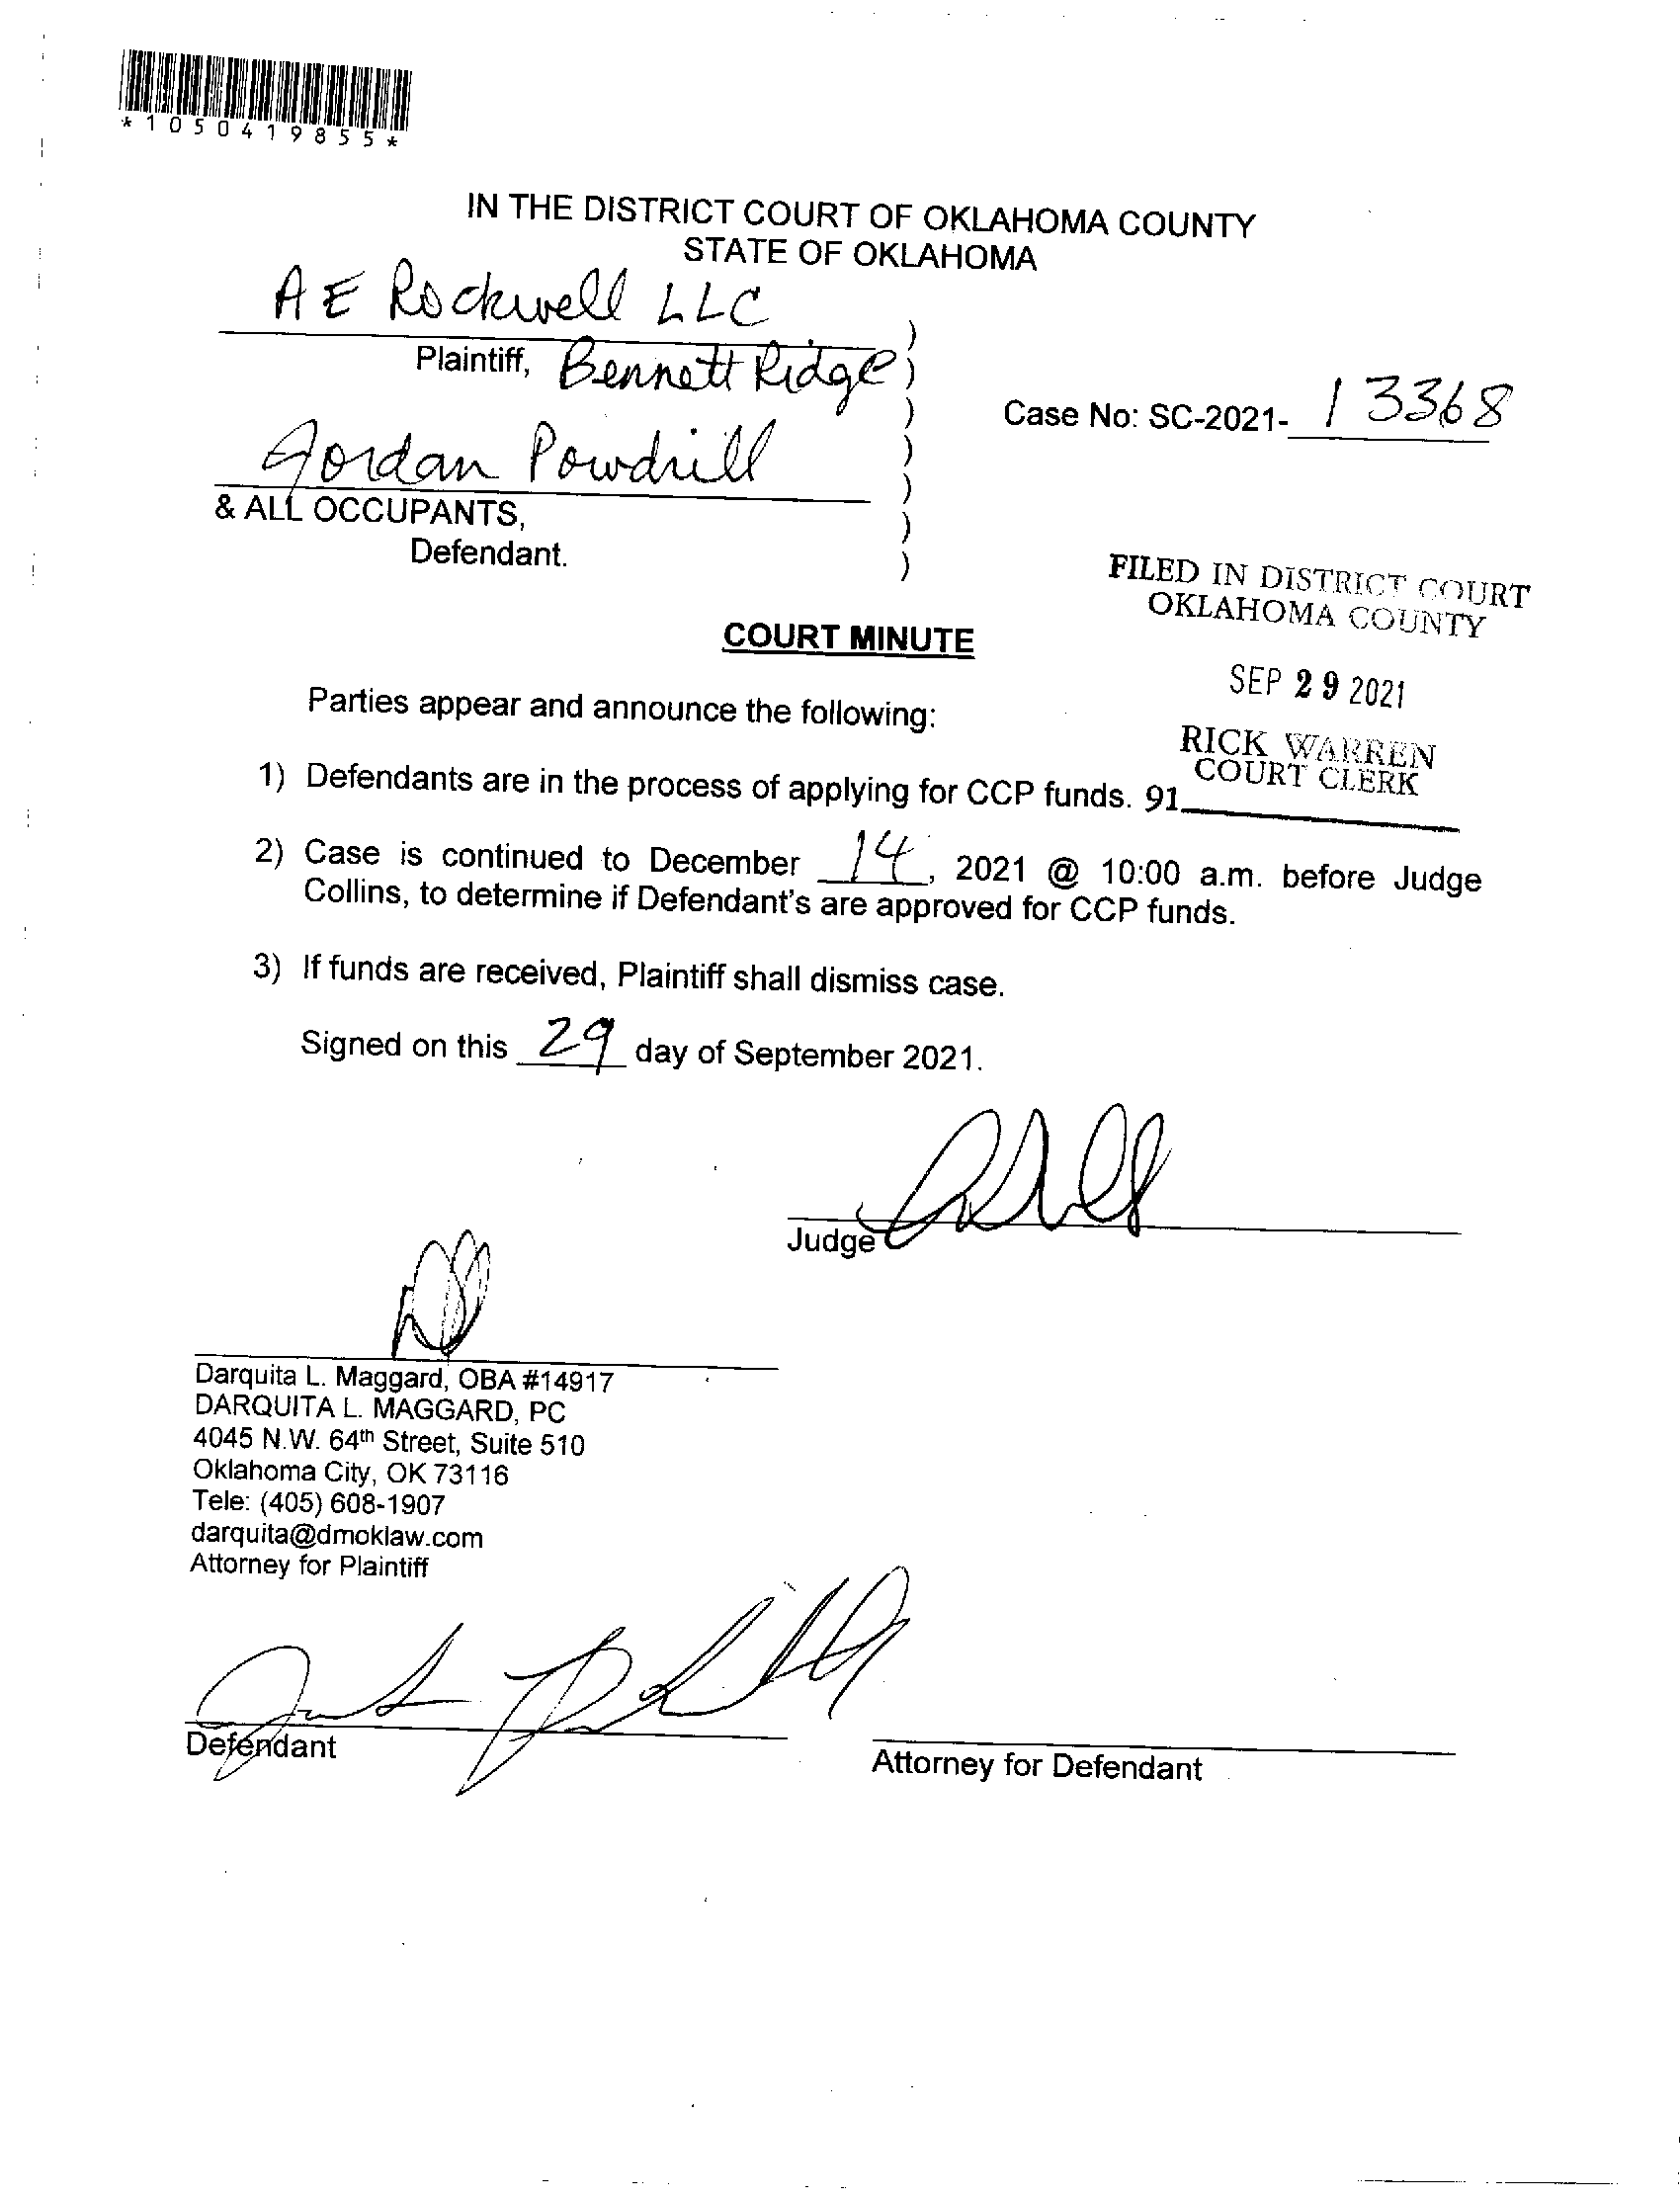 *1050419855*
IN THE DISTRICT COURT OF OKLAHOMA COUNTY
STATE OF OKLAHOMA
A E Rockwell LLC
Plaintiff, Bennett Ridge
Case No: SC-2021- 13368
Jordan Powdrill
& ALL OCCUPANTS,
Defendant.
FILED IN DISTRICT COURT
OKLAHOMA COUNTY
COURT MINUTE
SEP 29 2021
Parties appear and announce the following:
RICK WARREN
COURT CLERK
1) Defendants are in the process of applying for CCP funds. 91
2) Case is continued to December 14, 2021 @ 10:00 a.m. before Judge
Collins, to determine if Defendant's are approved for CCP funds.
3) If funds are received, Plaintiff shall dismiss case.
Signed on this 29 day of September 2021.
Judge
Darquita L. Maggard, OBA #14917
DARQUITA L. MAGGARD, PC
4045 N.W. 64th Street, Suite 510
Oklahoma City, OK 73116
Tele: (405) 608-1907
darquita@dmoklaw.com
Attorney for Plaintiff
Defendant
Attorney for Defendant